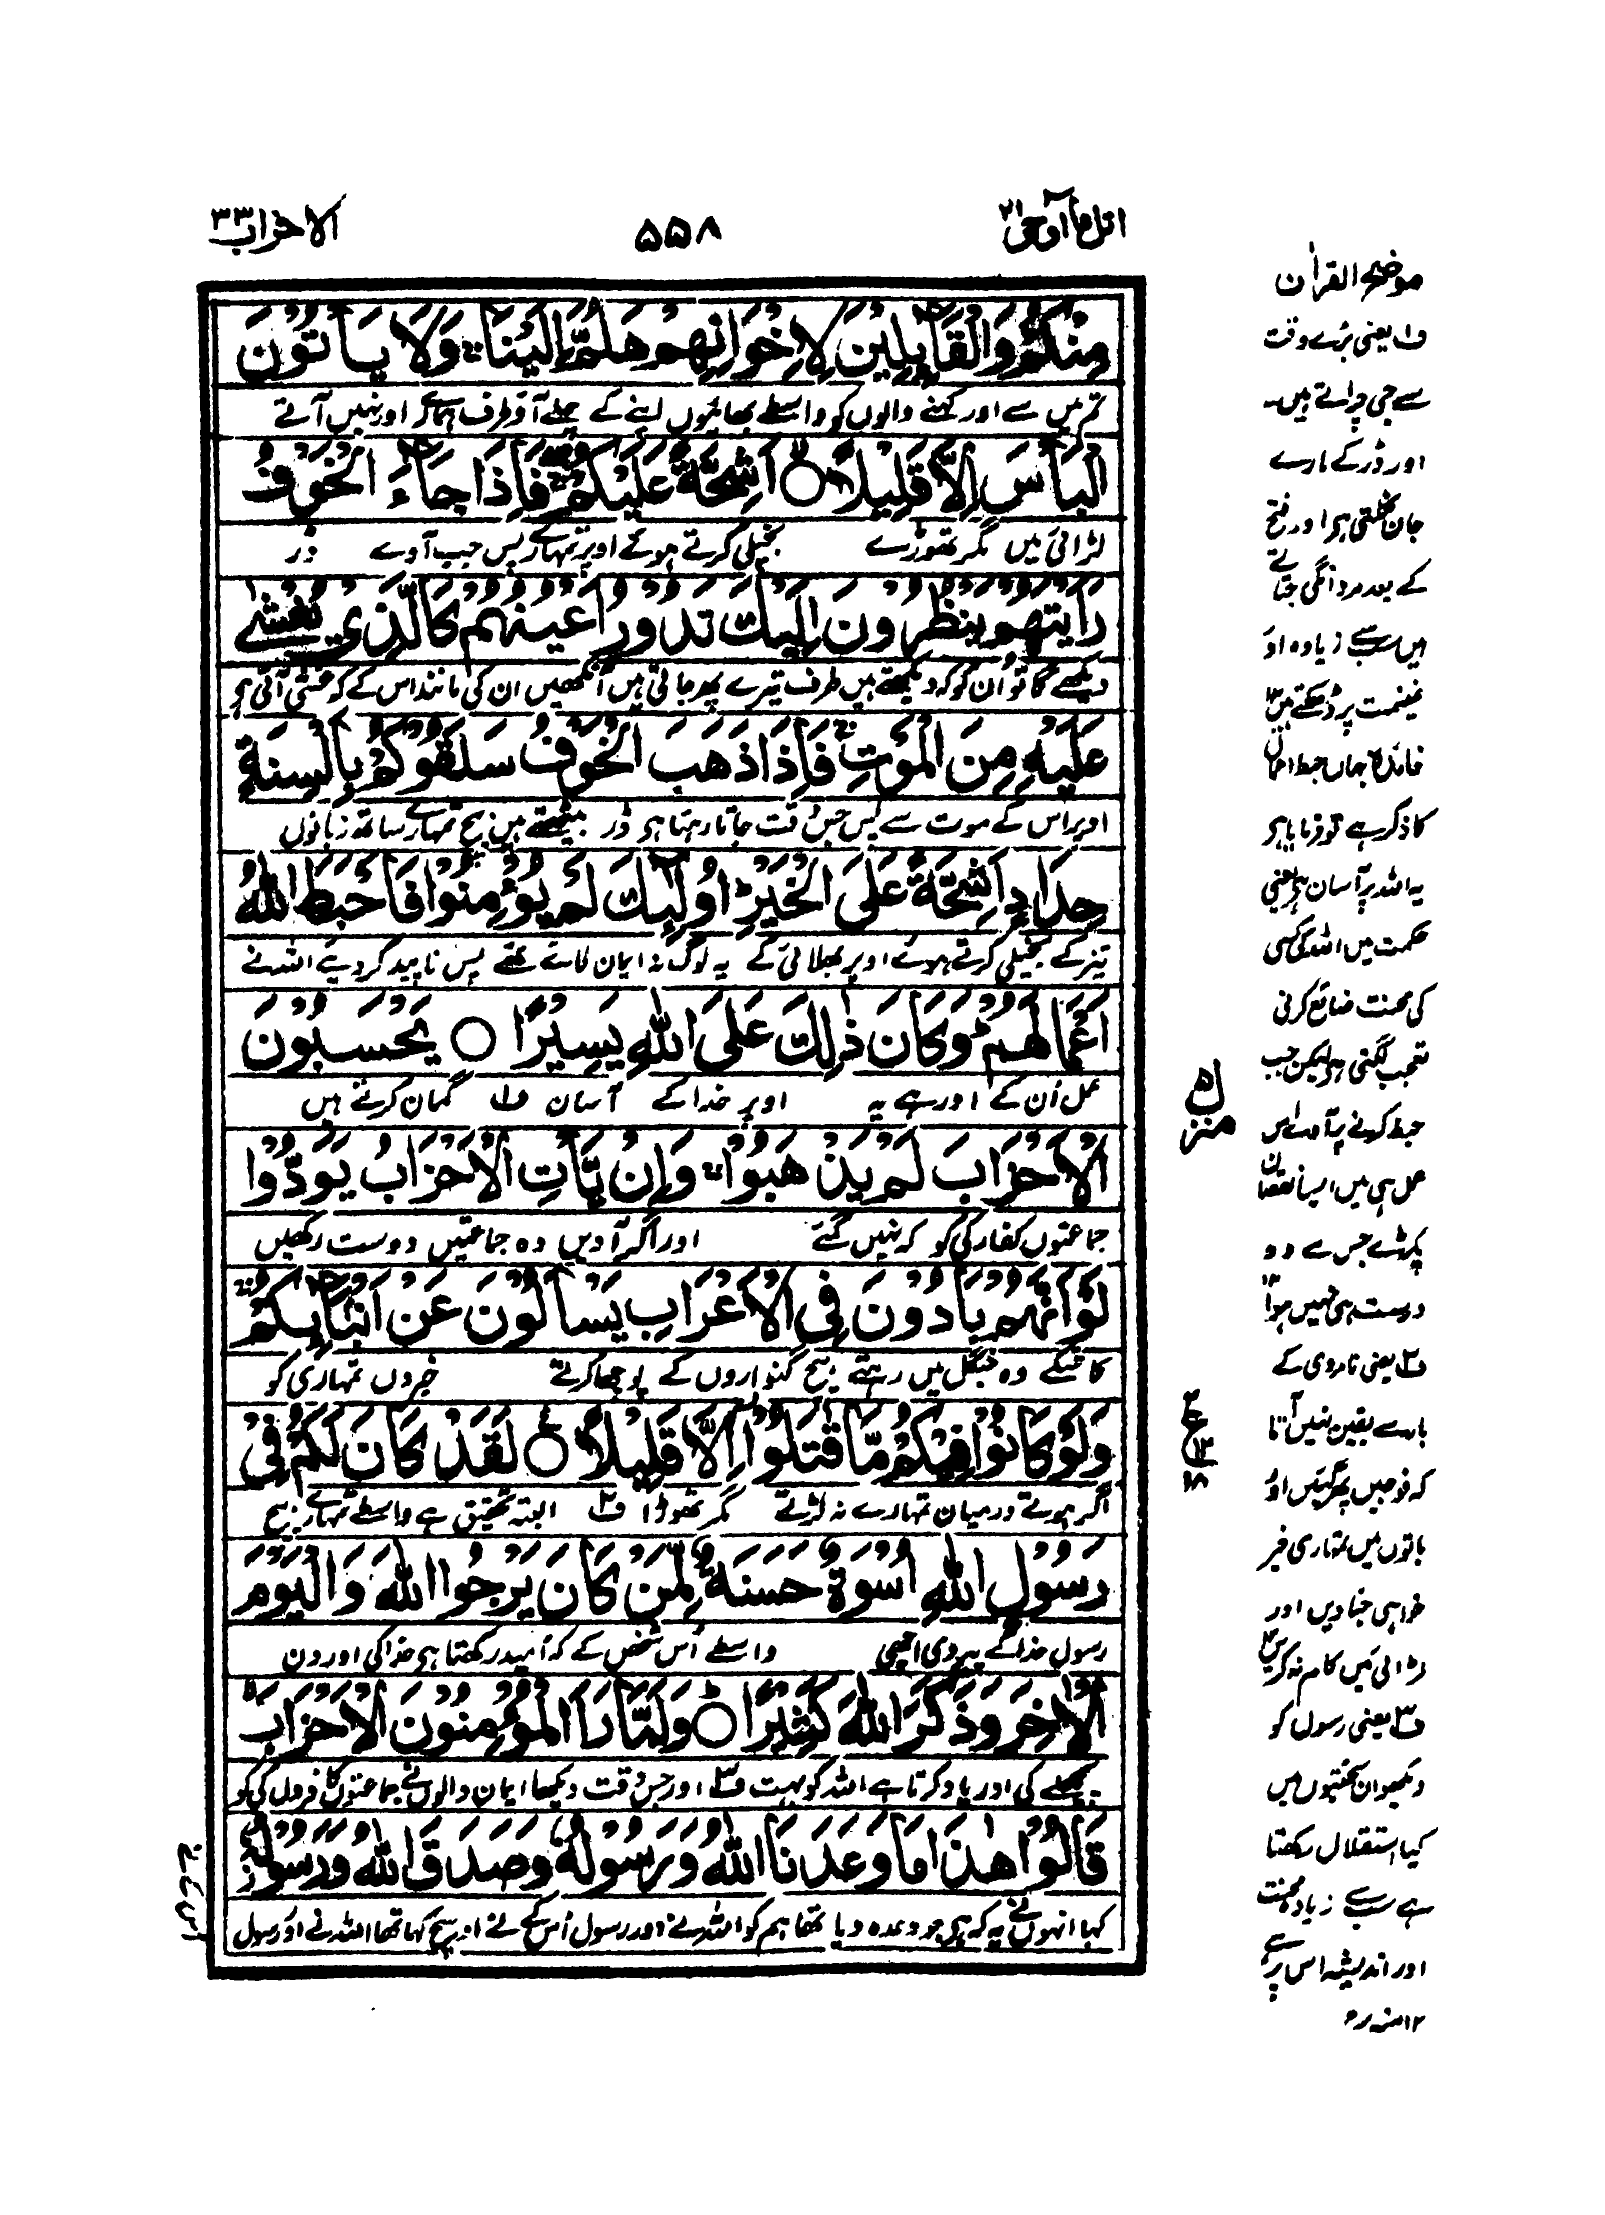 اتل ما اوحی ۲۱
۵۵۸
الاحزاب ۳۳
مِنْكُمْ وَالْقَآئِلِيْنَ لِاِخْوَانِهِمْ هَلُمَّ اِلَيْنَا ۚ وَلَا يَاْتُوْنَ
تم میں سے اور کہنے والوں کو واسطے بھائیوں اپنے کے چلے آؤ طرف ہمارے اور نہیں آتے
الْبَاْسَ اِلَّا قَلِيْلًا ۙ○ اَشِحَّةً عَلَيْكُمْ ۖ فَاِذَا جَآءَ الْخَوْفُ
لڑائی میں مگر تھوڑے بخیلی کرتے ہوئے اوپر تمہارے پس جب آوے ڈر
رَاَيْتَهُمْ يَنْظُرُوْنَ اِلَيْكَ تَدُوْرُ اَعْيُنُهُمْ كَالَّذِيْ يُغْشٰے
دیکھے گا تو اُن کو کہ دیکھتے ہیں طرف تیرے پھر جاتی ہیں آنکھیں ان کی مانند اس کے کہ غشی آتی ہی
عَلَيْهِ مِنَ الْمَوْتِ ۚ فَاِذَا ذَهَبَ الْخَوْفُ سَلَقُوْكُمْ بِاَلْسِنَةٍ
اوپر اس کے موت سے پس جس وقت جاتا رہتا ہی ڈر بیٹھتے ہیں بیچ تمہارے ساتھ زبانوں
حِدَادٍ اَشِحَّةً عَلَى الْخَيْرِ ؕ اُولٰٓئِكَ لَمْ يُؤْمِنُوْا فَاَحْبَطَ اللّٰهُ
تیز کے بخیلی کرتے ہوئے اوپر بھلائی کے یہ لوگ نہ ایمان لائے تھے پس ناپید کردیے اللہ نے
اَعْمَالَهُمْ ؕ وَكَانَ ذٰلِكَ عَلَى اللّٰهِ يَسِيْرًا ○ يَحْسَبُوْنَ
عمل اُن کے اور ہے یہ اوپر خدا کے آسان ف۱ گمان کرتے ہیں
الْاَحْزَابَ لَمْ يَذْهَبُوْا ۚ وَاِنْ يَّاْتِ الْاَحْزَابُ يَوَدُّوْا
جماعتوں کفار کی کو کہ نہیں گئے اور اگر آویں وہ جماعتیں دوست رکھیں
لَوْ اَنَّهُمْ بَادُوْنَ فِى الْاَعْرَابِ يَسْاَلُوْنَ عَنْ اَنْۢبَآئِكُمْ ؕ
کاشکے وہ جنگل میں رہتے بیچ گنواروں کے پوچھا کرتے خبروں تمہاری کو
وَلَوْ كَانُوْا فِيْكُمْ مَّا قٰتَلُوْا اِلَّا قَلِيْلًا ○ لَقَدْ كَانَ لَكُمْ فِيْ
اگر ہوتے درمیان تمہارے نہ لڑتے مگر تھوڑا ف۲ البتہ تحقیق ہے واسطے تمہارے بیچ
رَسُوْلِ اللّٰهِ اُسْوَةٌ حَسَنَةٌ لِّمَنْ كَانَ يَرْجُوا اللّٰهَ وَالْيَوْمَ
رسول خدا کے پیروی اچھی واسطے اُس شخص کے کہ اُمید رکھتا ہی خدا کی اور دن
الْاٰخِرَ وَذَكَرَ اللّٰهَ كَثِيْرًا ؕ○ وَلَمَّا رَاَ الْمُؤْمِنُوْنَ الْاَحْزَابَ
پچھلے کی اور یاد کرتا ہے اللہ کو بہت ف۳ اور جس وقت دیکھا ایمان والوں نے جماعتوں کافروں کی کو
قَالُوْا هٰذَا مَا وَعَدَنَا اللّٰهُ وَرَسُوْلُهٗ وَصَدَقَ اللّٰهُ وَرَسُوْلُهٗ
کہا انہوں نے یہ کہ ہی جو وعدہ دیا تھا ہم کو اللہ نے اور رسول اُس کے نے اور سچ کہا تھا اللہ نے اور رسول
اس کے نے
منزل ۵
موضح القراٰن
ف۱ یعنی بُرے وقت
سے جی چراتے ہیں
اور ڈر کے مارے
جان نکلتی ہی اور فتح
کے بعد مردانگی جتاتے
ہیں سب سے زیادہ اور
غنیمت پر ڈھکتے ہیں ۱۲
فائدہ جہاں حبط اعمال
کا ذکر ہے تو فرمایا ہی
یہ اللہ پر آسان ہی یعنی
حکمت میں اللہ کی کسی
کی محنت ضائع کرنی
تعجب لگتی ہی لیکن جب
حبط کرنے پر آوے اس
عمل ہی میں ایسا نقصان
پکڑے جس سے وہ
درست ہی نہیں ہوا ۱۲
ف۲ یعنی نامردی کے
مارے یقین نہیں آتا
کہ فوجیں پھر گئیں اور
باتوں میں تمہاری خیر
خواہی جتا دیں اور
لڑائی میں کام نہ کریں
ف۳ یعنی رسول کو
دیکھو ان سختیوں میں
کیا استقلال رکھتا
ہے سب سے زیادہ محنت
اور اندیشہ اس پر ہے
۱۲ منہ رح